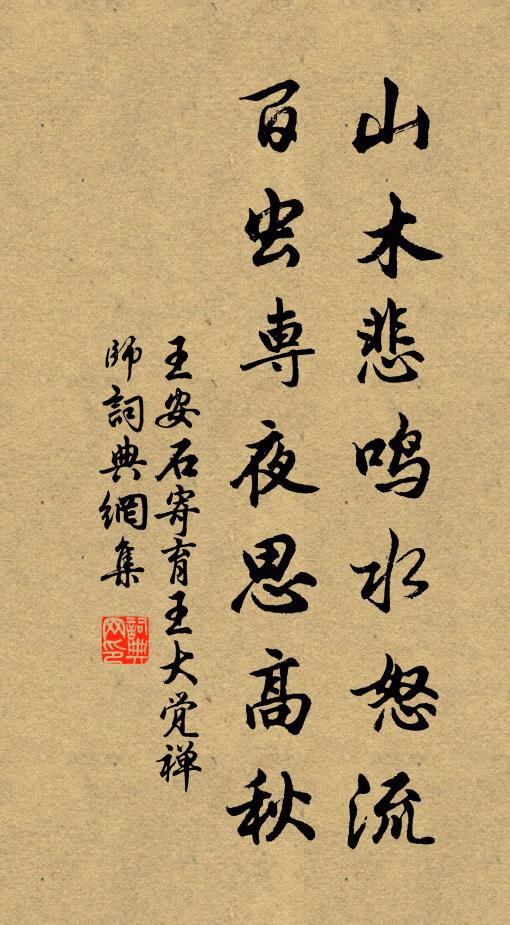 山木悲鸣水怒流
百虫专夜思高秋
王安石寄育王大觉禅
师词典網集
詞典网印